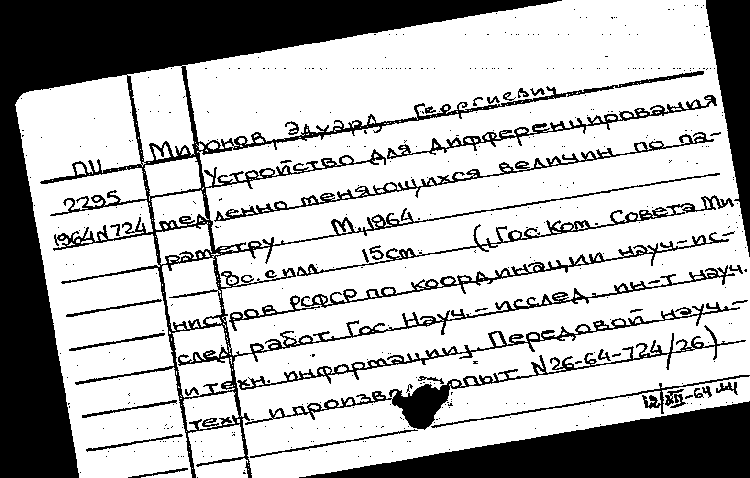 Миронов, Эдуард Георгиевич
ПИ Устройство для дифференцирования
2295 медленно меняющихся величин по па-
1964 N 724 раметру. М., 1964.
8 с. с илл. 15 см. (Гос. Ком. Совета Ми-
нистров РСФСР по координации науч.-ис-
след. работ. Гос. Науч.-исслед. ин-т науч.
и техн. информации. Передовой науч.-
техн. и произв. опыт. N 26-64-724/26)
12/XII-64